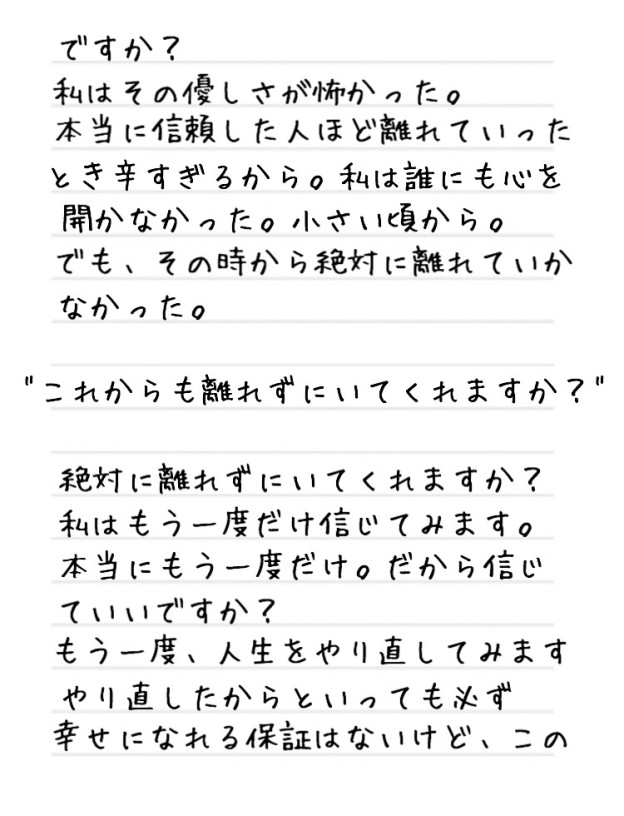 ですか?
私はその優しさが怖かった。
本当に信頼した人ほど離れていった
とき辛すぎるから。私は誰にも心を
開かなかった。小さい頃から。
でも、その時から絶対に離れていか
なかった。
"これからも離れずにいてくれますか?"
絶対に離れずにいてくれますか?
私はもう一度だけ信じてみます。
本当にもう一度だけ。だから信じ
ていいですか?
もう一度、人生をやり直してみます
やり直したからといっても必ず
幸せになれる保証はないけど、この